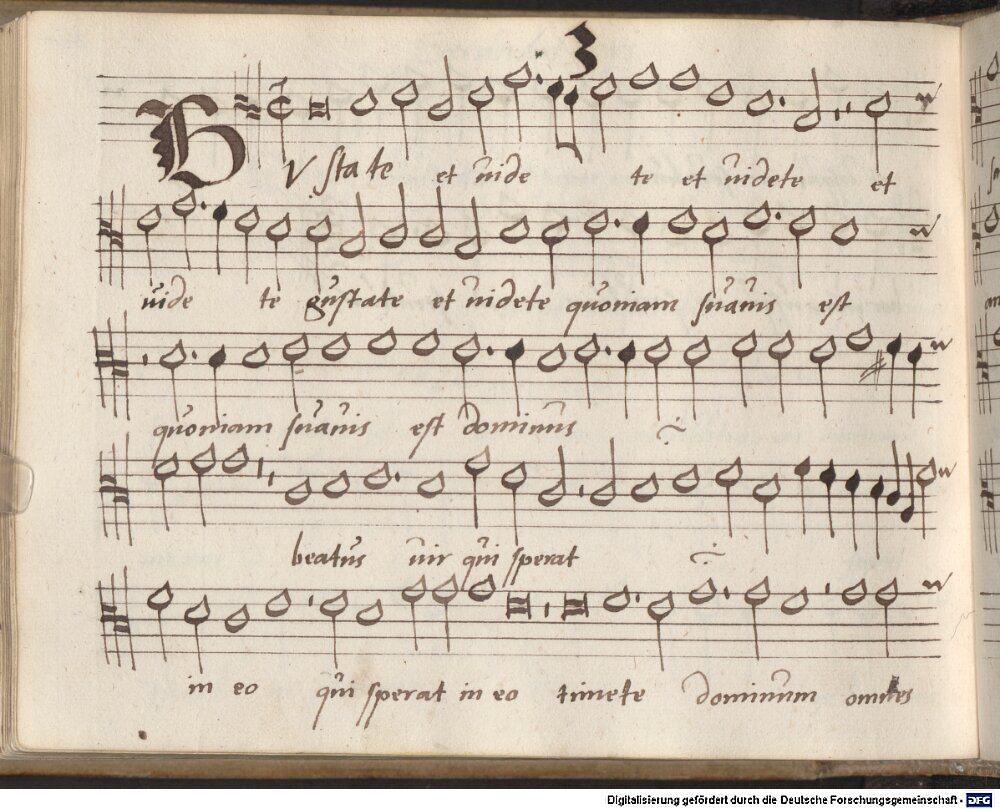 3
GVstate et vide te et videte et
vide te gustate et videte quoniam suavis est
quoniam suavis est dominus
beatus vir qui sperat
in eo qui sperat in eo timete dominum omnes
Digitalisierung gefördert durch die Deutsche Forschungsgemeinschaft - DFG